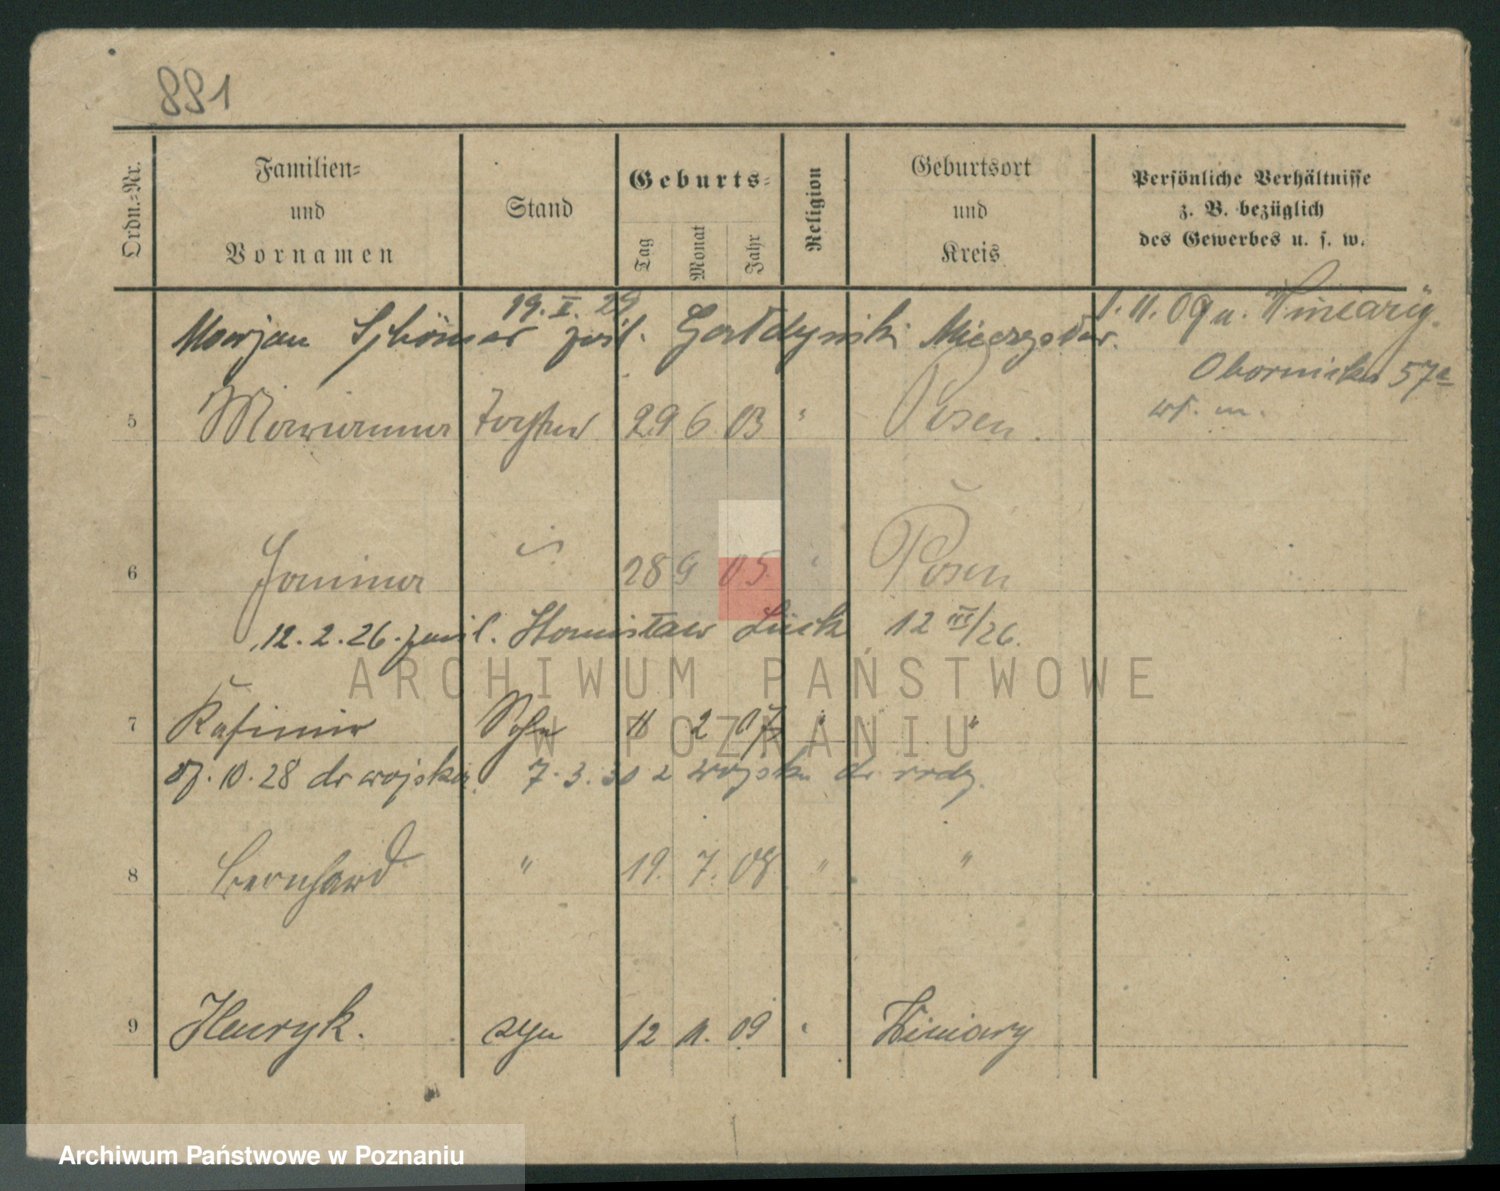 891
Ordn.-Nr.
Familien-
und
Vornamen
Stand
Geburts-
Tag
Monat
Jahr
Religion
Geburtsort
und
Kreis
Persönliche Verhältnisse
z. B. bezüglich
des Gewerbes u. s. w.
19. I. 29
11. 09 n. Winiary.
Marjan zail.
Obornicka 57a
5 Marianna Tochter 29 6 03 " Posen.
6 Janina " 28 9 05. " Posen
12. 2. 26. zail. Stanisław Lück 12 III/26.
7 Kasimir Sohn 11 2 07 " "
10. 28 do wojska 7. 3. 30 z wojska do rodz.
8 Bernhard " 19. 7. 08 " "
9 Henryk. syn 12 11. 09 " Winiary
ARCHIWUM PAŃSTWOWE
W POZNANIU
Archiwum Państwowe w Poznaniu